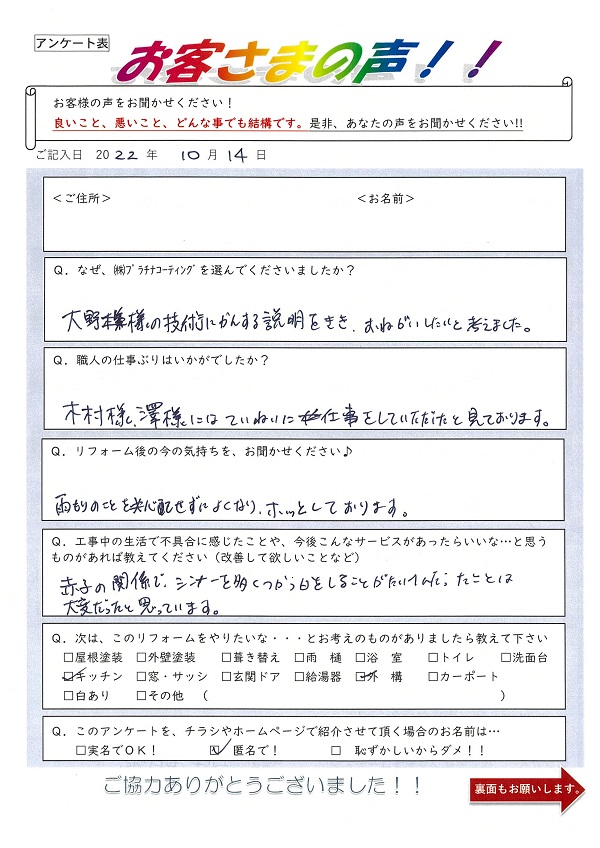 アンケート表
お客さまの声！！
お客様の声をお聞かせください！
良いこと、悪いこと、どんな事でも結構です。是非、あなたの声をお聞かせください!!
ご記入日 2022年 10月14日
＜ご住所＞ ＜お名前＞
Q．なぜ、㈱ﾌﾟﾗﾁﾅｺｰﾃｨﾝｸﾞを選んでくださいましたか？
大野様の技術にかんする説明をきき、おねがいしたいと考えました。
Q．職人の仕事ぶりはいかがでしたか？
木村様、澤様にはていねいに仕事をしていただたと見ております。
Q．リフォーム後の今の気持ちを、お聞かせください♪
雨もりのことを心配せずによくなり、ホッとしております。
Q．工事中の生活で不具合に感じたことや、今後こんなサービスがあったらいいな…と思う
ものがあれば教えてください（改善して欲しいことなど）
赤子の関係で、シンナーを多くつかう日をしることが
大変だったと思っています。
Q．次は、このリフォームをやりたいな・・・とお考えのものがありましたら教えて下さい
□屋根塗装 □外壁塗装 □葺き替え □雨 樋 □浴 室 □トイレ □洗面台
☑キッチン □窓・サッシ □玄関ドア □給湯器 ☑外 構 □カーポート
□白あり □その他 （ ）
Q．このアンケートを、チラシやホームページで紹介させて頂く場合のお名前は…
□実名でOK！ ☑匿名で！ □ 恥ずかしいからダメ！！
ご協力ありがとうございました！！
裏面もお願いします。